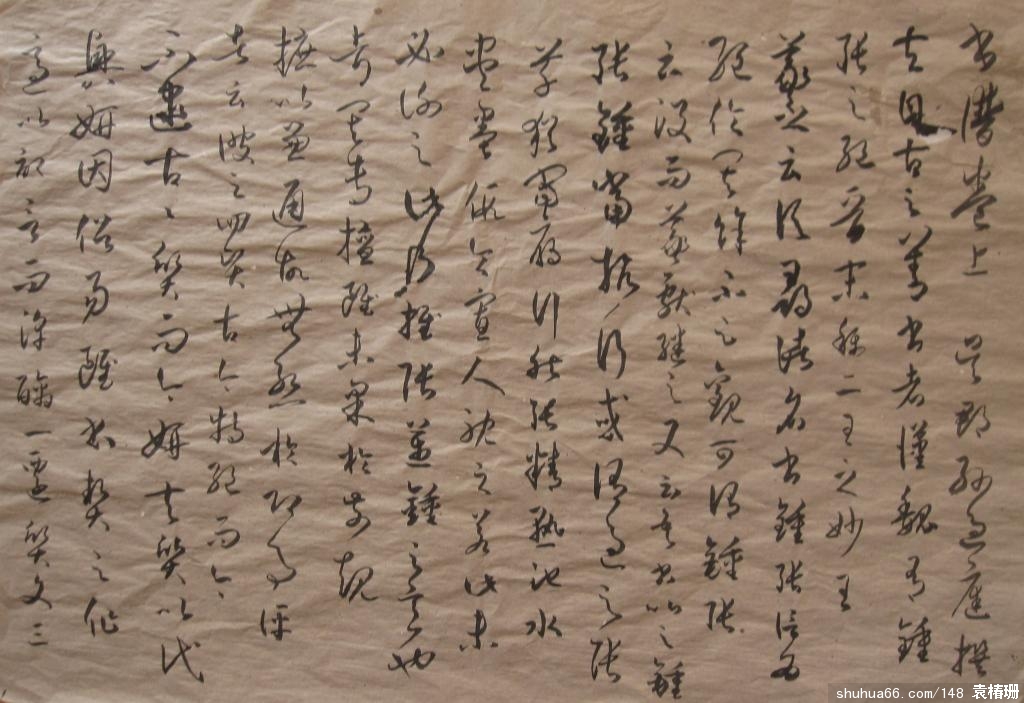 書譜卷上 吳郡孫過庭撰
夫自古之善書者漢魏有鍾
張之絕晉末稱二王之妙王
羲之云頃尋諸名書鍾張信為
絕倫其餘不足觀可謂鍾張
云沒而羲獻繼之又云吾書比之鍾
張鍾當抗行或謂過之張
草猶當雁行然張精熟池水
盡墨假令寡人耽之若此未
必謝之此乃推張邁鍾之意也
考其專擅雖未果於前規
摭以兼通故無慚於即事評
者云彼之四賢古今特絕而今
不逮古古質而今妍夫質以代
興妍因俗易雖書契之作
適以記言而淳醨一遷質文三
shuhua66.com/148 袁椿珊